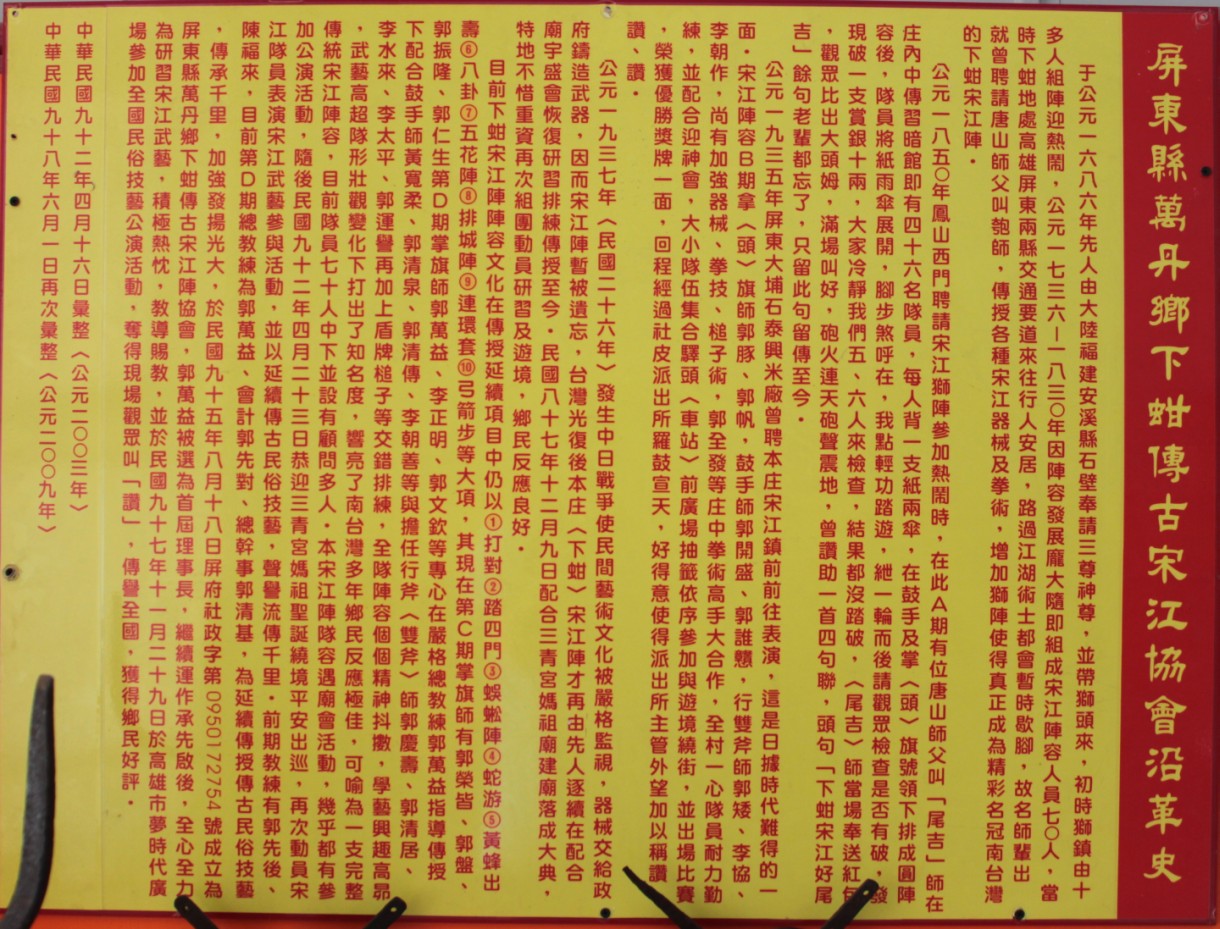 屏東縣萬丹鄉下蚶傳古宋江協會沿革史
于公元一六八六年先人由大陸福建安溪縣石壁奉請三尊神尊，並帶獅頭來，初時獅鎮由十
多人組陣迎熱鬧，公元一七三六－一八三〇年因陣容發展龐大隨即組成宋江陣容人員七〇人，當
時下蚶地處高雄屏東兩縣交通要道來往行人安居，路過江湖術士都會暫時歇腳，故名師輩出
就曾聘請唐山師父叫匏師，傳授各種宋江器械及拳術，增加獅陣使得真正成為精彩名冠南台灣
的下蚶宋江陣．
公元一八五〇年鳳山西門聘請宋江獅陣參加熱鬧時，在此A期有位唐山師父叫「尾吉」師在
庄內中傳習暗館即有四十六名隊員，每人背一支紙兩傘，在鼓手及掌〈頭〉旗號領下排成圓陣
容後，隊員將紙雨傘展開，腳步煞呼在，我點輕功踏遊，紲一輪而後請觀眾檢查是否有破，發
現破一支賞銀十兩，大家冷靜我們五、六人來檢查，結果都沒踏破，〈尾吉〉師當場奉送紅包
，觀眾比出大頭姆，滿場叫好，砲火連天砲聲震地，曾讚助一首四句聯，頭句「下蚶宋江好尾
吉」餘句老輩都忘了，只留此句留傳至今．
公元一九三五年屏東大埔石泰興米廠曾聘本庄宋江鎮前前往表演，這是日據時代難得的一
面．宋江陣容B期拿〈頭〉旗師郭豚、郭帆，鼓手師郭開盛、郭誰戇，行雙斧師郭矮、李協、
李朝作，尚有加強器械、拳技、槌子術，郭全發等庄中拳術高手大合作，全村一心隊員耐力勤
練，並配合迎神會，大小隊伍集合驛頭〈車站〉前廣場抽籤依序參加與遊境繞街，並出場比賽
，榮獲優勝獎牌一面，回程經過社皮派出所羅鼓宣天，好得意使得派出所主管外望加以稱讚
讚、讚．
公元一九三七年〈民國二十六年〉發生中日戰爭使民間藝術文化被嚴格監視，器械交給政
府鑄造武器，因而宋江陣暫被遺忘，台灣光復後本庄〈下蚶〉宋江陣才再由先人逐續在配合
廟宇盛會恢復研習排練傳授至今．民國八十七年十二月九日配合三青宮媽祖廟建廟落成大典，
特地不惜重資再次組團動員研習及遊境，鄉民反應良好．
目前下蚶宋江陣陣容文化在傳授延續項目中仍以①打對②踏四門③蜈蚣陣④蛇游⑤黃蜂出
壽⑥八卦⑦五花陣⑧排城陣⑨連環套⑩弓箭步等大項，其現在第C期掌旗師有郭榮皆、郭盤、
郭振隆、郭仁生第D期掌旗師郭萬益、李正明、郭文欽等專心在嚴格總教練郭萬益指導傳授
下配合鼓手師黃寬柔、郭清泉、郭清傳、李朝善等與擔任行斧〈雙斧〉師郭慶壽、郭清居、
李水來、李太平、郭運譽再加上盾牌槌子等交錯排練，全隊陣容個個精神抖擻，學藝興趣高昂
，武藝高超隊形壯觀變化下打出了知名度，響亮了南台灣多年鄉民反應極佳，可喻為一支完整
傳統宋江陣容，目前隊員七十人中下並設有顧問多人．本宋江陣隊容遇廟會活動，幾乎都有參
加公演活動，隨後民國九十二年四月二十三日恭迎三青宮媽祖聖誕繞境平安出巡，再次動員宋
江隊員表演宋江武藝參與活動，並以延續傳古民俗技藝，聲譽流傳千里．前期教練有郭先後、
陳福來，目前第D期總教練為郭萬益、會計郭先對、總幹事郭清基，為延續傳授傳古民俗技藝
，傳承千里，加強發揚光大，於民國九十五年八月十八日屏府社政字第0950172754號成立為
屏東縣萬丹鄉下蚶傳古宋江陣協會，郭萬益被選為首屆理事長，繼續運作承先啟後，全心全力
為研習宋江武藝，積極熱忱，教導賜教，並於民國九十七年十一月二十九日於高雄市夢時代廣
場參加全國民俗技藝公演活動，奪得現場觀眾叫「讚」，傳譽全國，獲得鄉民好評．
中華民國九十二年四月十六日彙整〈公元二〇〇三年〉
中華民國九十八年六月一日再次彙整〈公元二〇〇九年〉